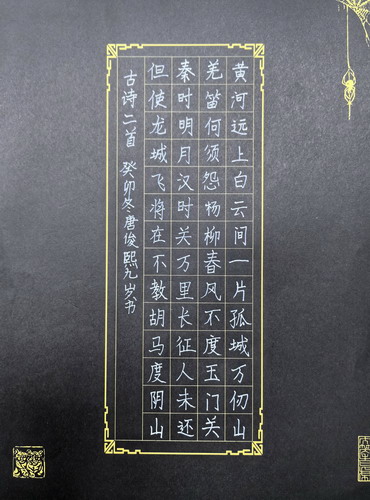 黄河远上白云间一片孤城万仞山
羌笛何须怨杨柳春风不度玉门关
秦时明月汉时关万里长征人未还
但使龙城飞将在不教胡马度阴山
古诗二首 癸卯冬唐俊熙九岁书